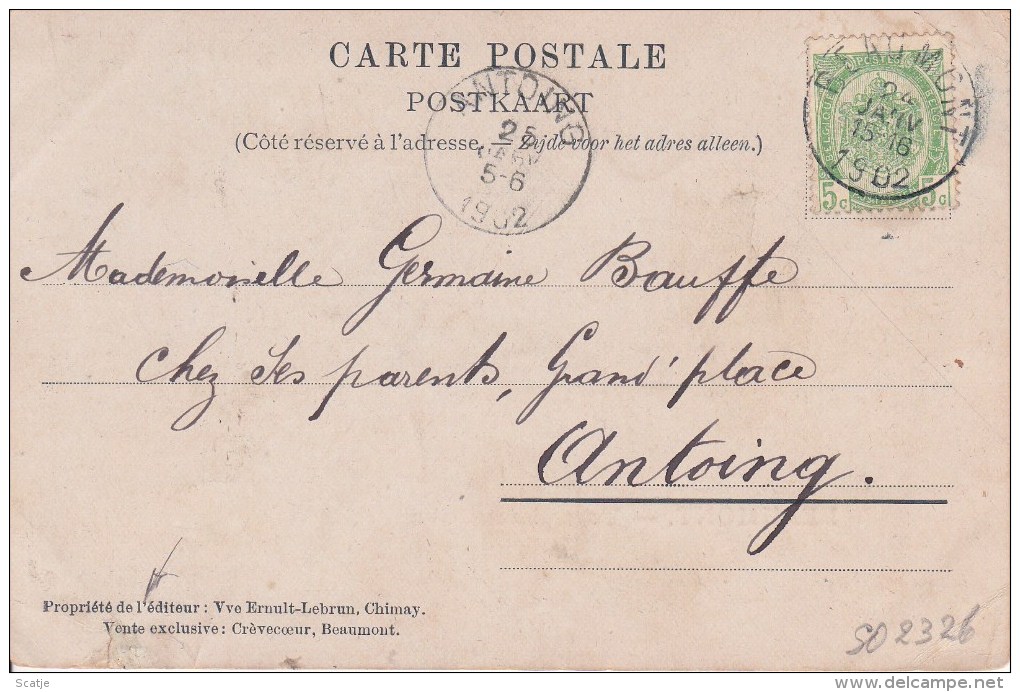 CARTE POSTALE
POSTKAART
(Côté réservé à l'adresse. — Zijde voor het adres alleen.)
ANTOING
25
JANV
5-6
1902
BEAUMONT
24
JANV
15-16
1902
5c 5c
Mademoiselle Germaine Bauffe
chez ses parents, Grand' place
Antoing.
Propriété de l'éditeur : Vve Ernult-Lebrun, Chimay.
Vente exclusive : Crèvecœur, Beaumont.
SO2326
Scatje
delcampe.net